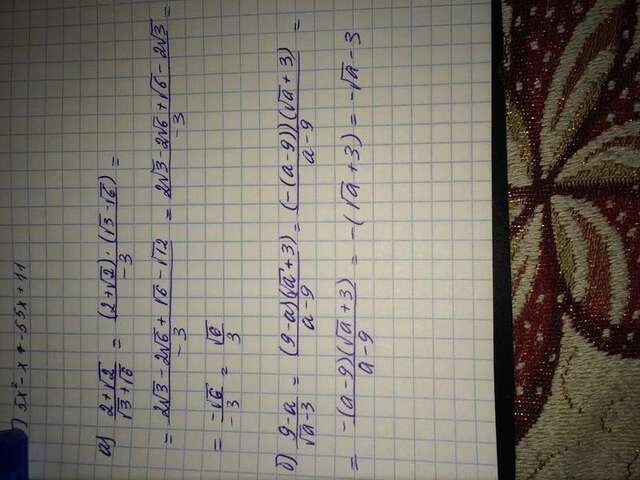 ) 5x² - x + -55x + 11
а) (2+√2)/(√3+√6) = ((2+√2)·(√3-√6))/(-3) =
= (2√3 - 2√6 + √6 - √12)/(-3) = (2√3 - 2√6 + √6 - 2√3)/(-3) =
= (-√6)/(-3) = √6/3
б) (9-a)/(√a-3) = ((9-a)(√a+3))/(a-9) = ((-(a-9))(√a+3))/(a-9) =
= (-(a-9)(√a+3))/(a-9) = -(√a+3) = -√a-3